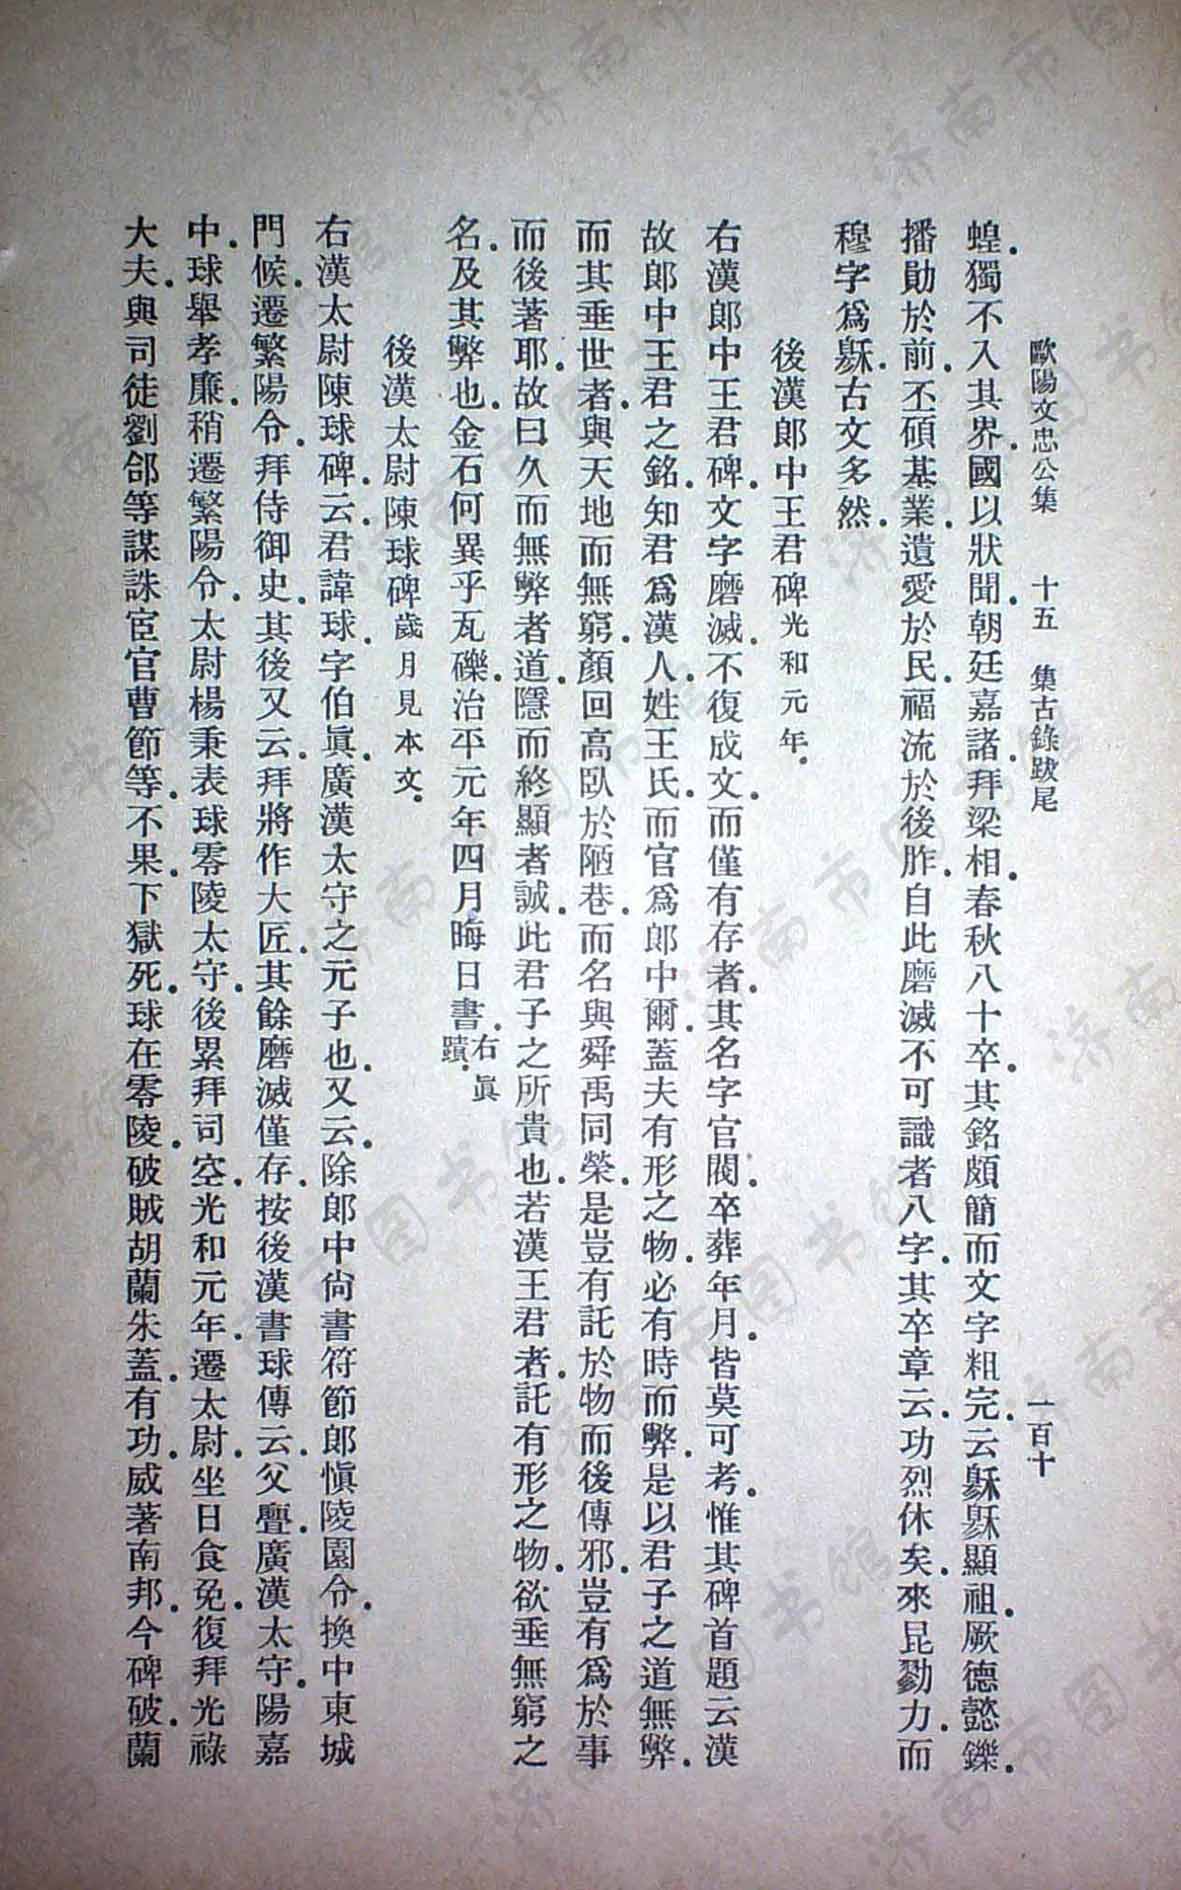 歐陽文忠公集　十五　集古錄跋尾　一百十
蝗.獨不入其界.國以狀聞.朝廷嘉諸.拜梁相.春秋八十卒.其銘頗簡而文字粗完.云䌛䌛顯祖.厥德懿鑠.
播勛於前.丕碩基業.遺愛於民.福流於後胙.自此磨滅不可識者八字.其卒章云.功烈休矣.來昆勠力.而
穆字爲䌛.古文多然.
後漢郎中王君碑光和元年.
右漢郎中王君碑.文字磨滅.不復成文.而僅有存者.其名字官閥.卒葬年月.皆莫可考.惟其碑首題云漢
故郎中王君之銘.知君爲漢人.姓王氏.而官爲郎中爾.蓋夫有形之物.必有時而弊.是以君子之道無弊.
而其垂世者.與天地而無窮.顏回高臥於陋巷.而名與舜禹同榮.是豈有託於物而後傳邪.豈有爲於事
而後著耶.故曰久而無弊者道.隱而終顯者誠.此君子之所貴也.若漢王君者.託有形之物.欲垂無窮之
名.及其弊也.金石何異乎瓦礫.治平元年四月晦日書.右眞蹟.
後漢太尉陳球碑歲月見本文.
右漢太尉陳球碑.云.君諱球.字伯眞.廣漢太守之元子也.又云.除郎中尙書符節郎愼陵園令.換中東城
門候.遷繁陽令.拜侍御史.其後又云.拜將作大匠.其餘磨滅僅存.按後漢書球傳云.父亹.廣漢太守.陽嘉
中.球舉孝廉.稍遷繁陽令.太尉楊秉表球零陵太守.後累拜司空.光和元年.遷太尉.坐日食免.復拜光祿
大夫.與司徒劉郃等謀誅宦官曹節等.不果.下獄死.球在零陵.破賊胡蘭朱蓋.有功.威著南邦.今碑破.蘭
济南市图书馆